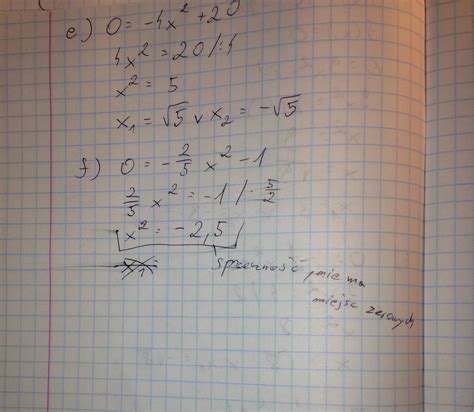 e) 0 = -4x² + 20
4x² = 20 /:4
x² = 5
x₁ = √5 ∨ x₂ = -√5
f) 0 = -2/5 x² - 1
2/5 x² = -1 / · 5/2
x² = -2,5 /
sprzeczność, nie ma
miejsc zerowych